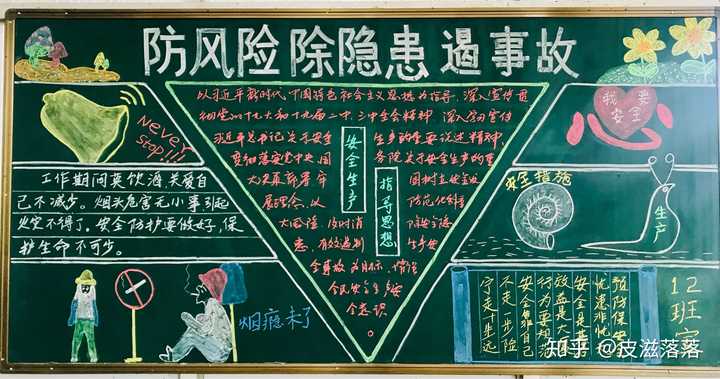 防风险 除隐患 遏事故
Never
stop!!!
工作期间莫饮酒,关爱自
己不减步。烟头危害无小事,引起
火灾不得了。安全防护要做好,保
护生命不可少。
烟瘾来了
以习近平新时代中国特色社会主义思想为指导,深入宣传贯
彻党的十九大和十九届二中、三中全会精神,深入学习宣传
习近平总书记关于安全
生产的重要论述精神,
贯彻落实党中央、国
务院关于安全生产的重
大决策部署,牢
固树立
展理念,以
防范化解重
大风险、及时消
除安全隐
患、有效遏制
生产安
全事故为目标,增强
全民安全生产安
全意识
。
安全生产
指导思想
我要
安全
安全措施
生产
预防保安
忧患非忧
安全是基
效益是大
行为要规范
安全靠自己
不走一步险
宁走十步远
12班宣
知乎 @皮滋落落